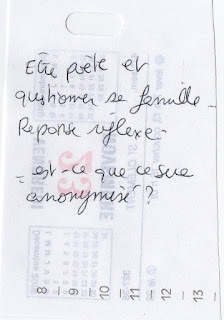 Etre poète et
questionner sa famille -
Reponse réflexe -
- est-ce que ce sera
anonymisé ?
8 -
9 -
10 -
11 -
12 -
13 -